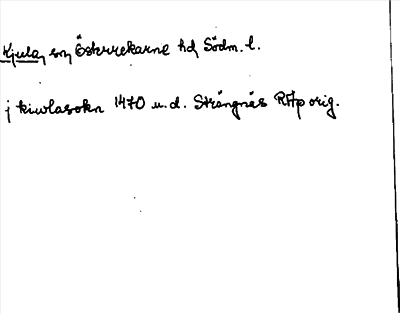 Kjula, sn, Österrekarne hd, Södm. l.
j kiwlasokn 1470 u.d. Strängnäs RAp orig.